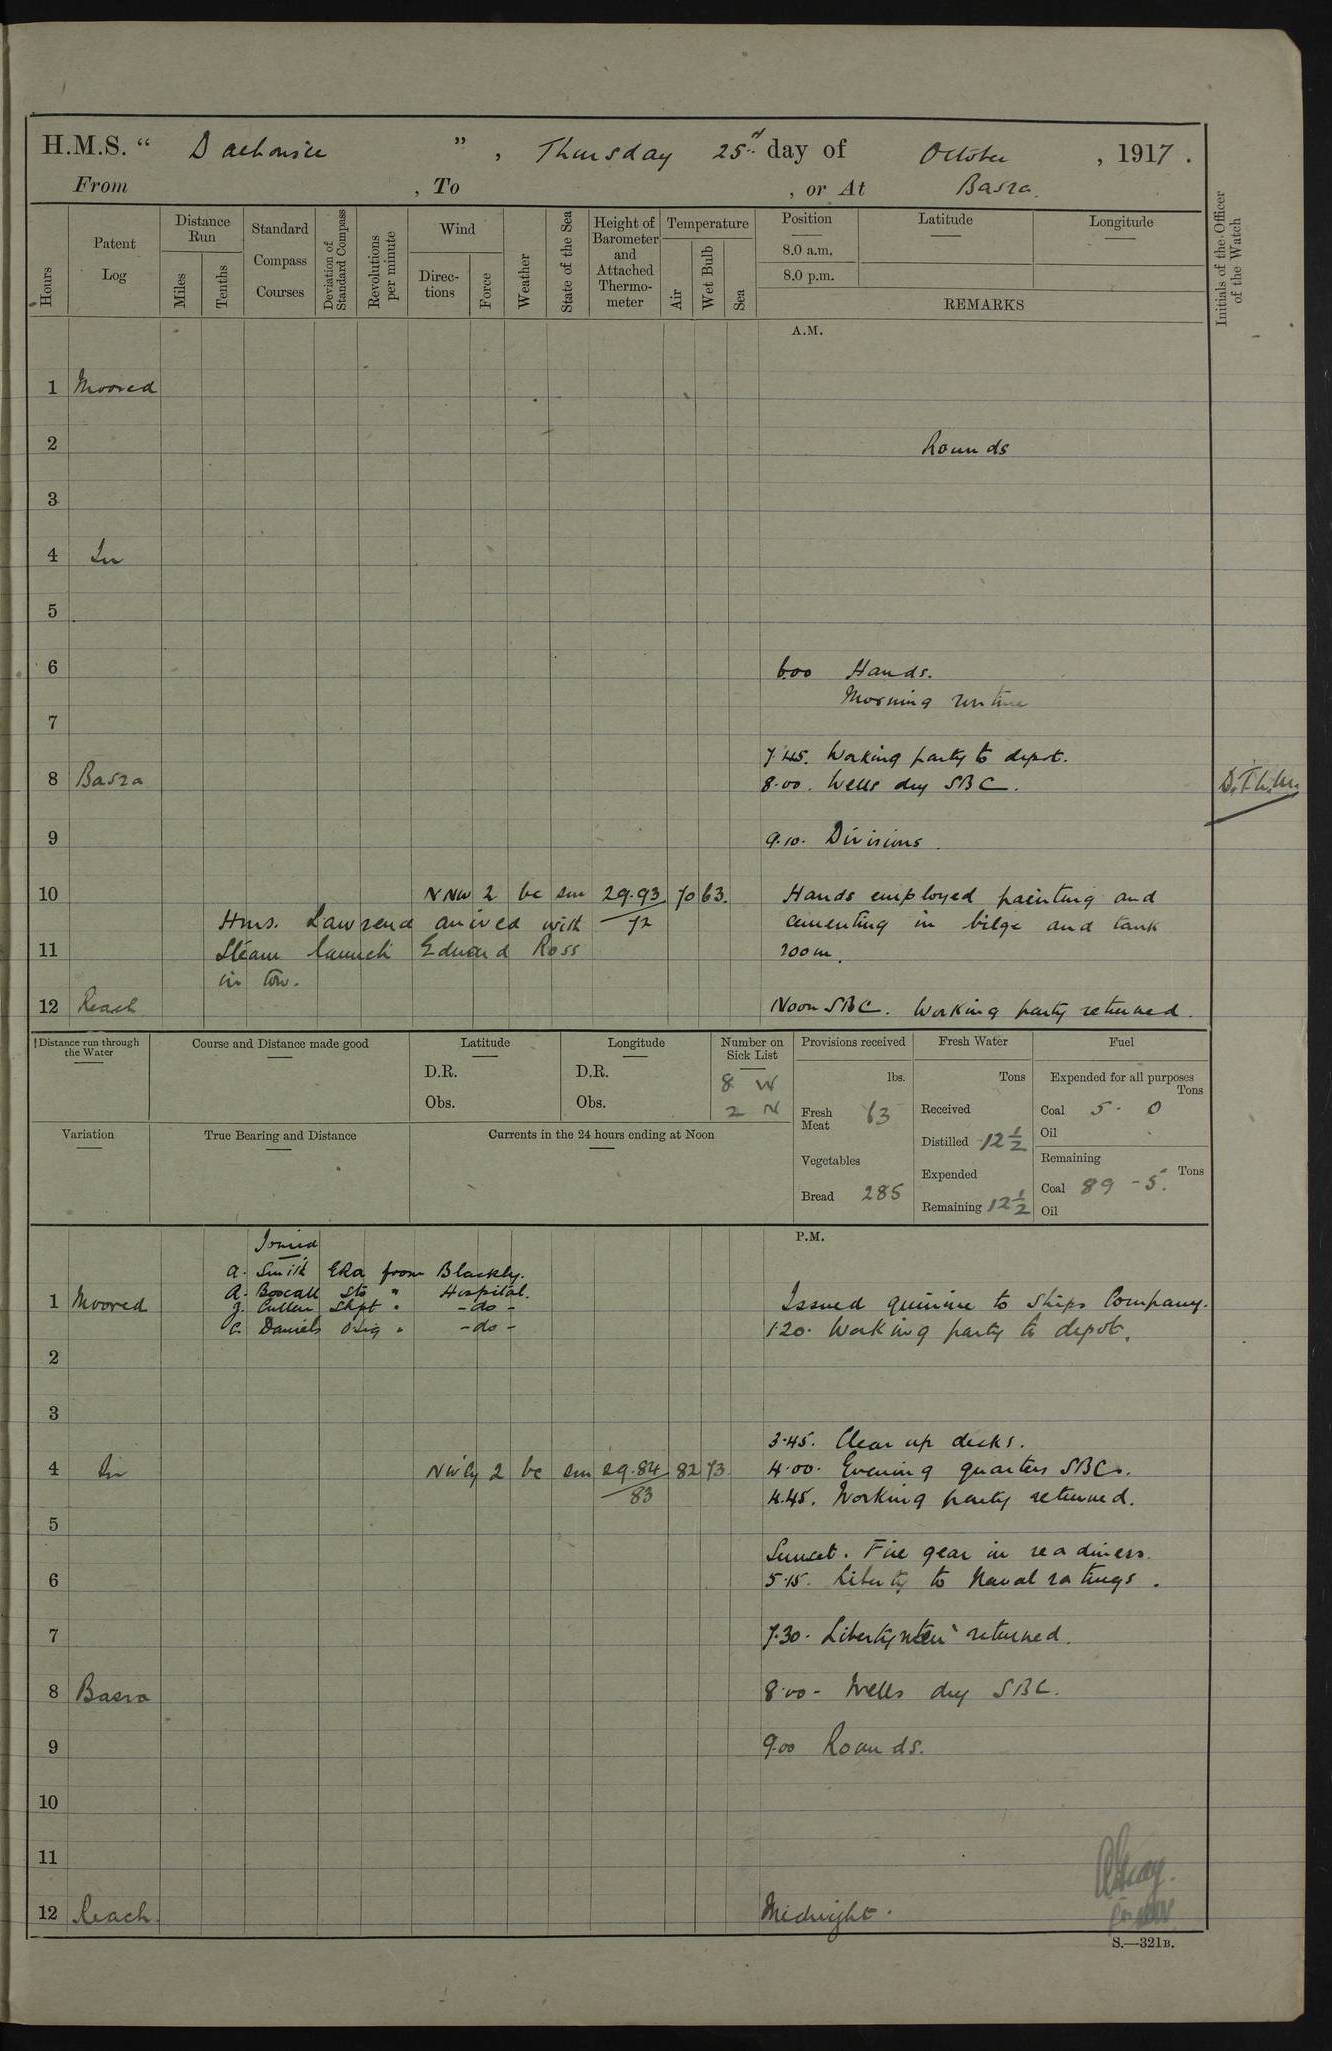 H.M.S. " Dalhousie " , Thursday 25th day of October , 1917 .
From , To , or At Basra.
Hours
Patent Log
Distance Run
Miles
Tenths
Standard Compass Courses
Deviation of Standard Compass
Revolutions per minute
Wind
Direc-tions
Force
Weather
State of the Sea
Height of Barometer and Attached Thermo-meter
Temperature
Air
Wet Bulb
Sea
Position
8.0 a.m.
8.0 p.m.
Latitude
Longitude
REMARKS
Initials of the Officer of the Watch
A.M.
1 Moored
2 Rounds
3
4 In
5
6 6.00 Hands.
Morning routine
7
7.45. Working party to depot.
8 Basra 8.00. Wells dry SBC.
9 9.10. Divisions.
10 NNW 2 bc sm 29.93 70 63. Hands employed painting and
Hms. Lawrence arived with 72 cementing in bilge and tank
11 Steam launch Edward Ross room.
in tow.
12 Reach Noon SBC. Working party returned.
Distance run through the Water
Course and Distance made good
Latitude
D.R.
Obs.
Longitude
D.R.
Obs.
Number on Sick List
8 W
2 N
Provisions received
lbs.
Fresh Meat 63
Vegetables
Bread 285
Fresh Water
Tons
Received
Distilled 12 1/2
Expended
Remaining 12 1/2
Fuel
Expended for all purposes
Tons
Coal 5. 0
Oil
Remaining
Tons
Coal 89 - 5.
Oil
Variation
True Bearing and Distance
Currents in the 24 hours ending at Noon
P.M.
Joined
A. Smith ERA from Blackfly.
A. Boxall Sto " Hospital.
1 Moored J. Cullen Shpt " - do - Issued quinine to Ships Company.
C. Daniels O.Sig " - do - 1.20. Working party to depot.
2
3
3.45. Clear up decks.
4 In NW'ly 2 bc sm 29.84 82 73 4.00. Evening quarters SBC.
83 4.45. Working party returned.
5
Sunset. Fire gear in readiness.
6 5.15. Liberty to Naval ratings.
7 7.30. Libertymen returned.
8 Basra 8.00 - Wells dry SBC.
9 9.00 Rounds.
10
11
12 Reach. Midnight.
S.—321B.